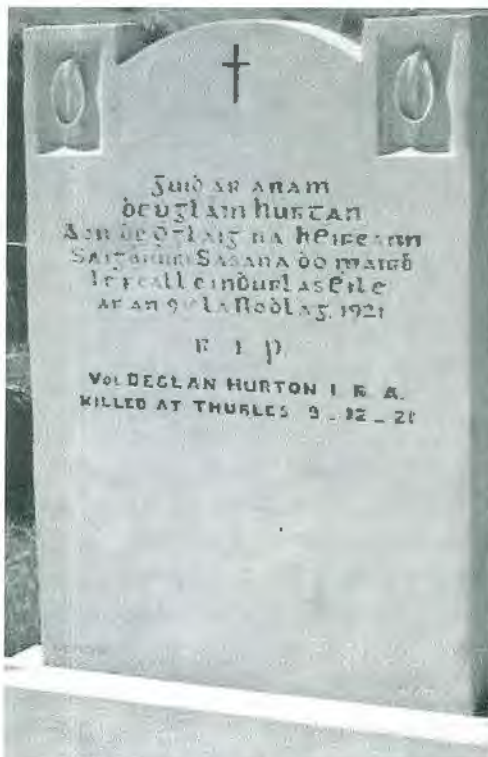 Guiḋ ar anam
Deuglain hurtan
Aon de Óglaiġ na hEireann
Saiġdiuiri Sasana do ṁairḃ
le feall i nDurlas Eile
ar an 9ᵃḋ lá Nodlag, 1921
R I P
Vol DEGLAN HURTON I R A.
KILLED AT THURLES 9-12-21